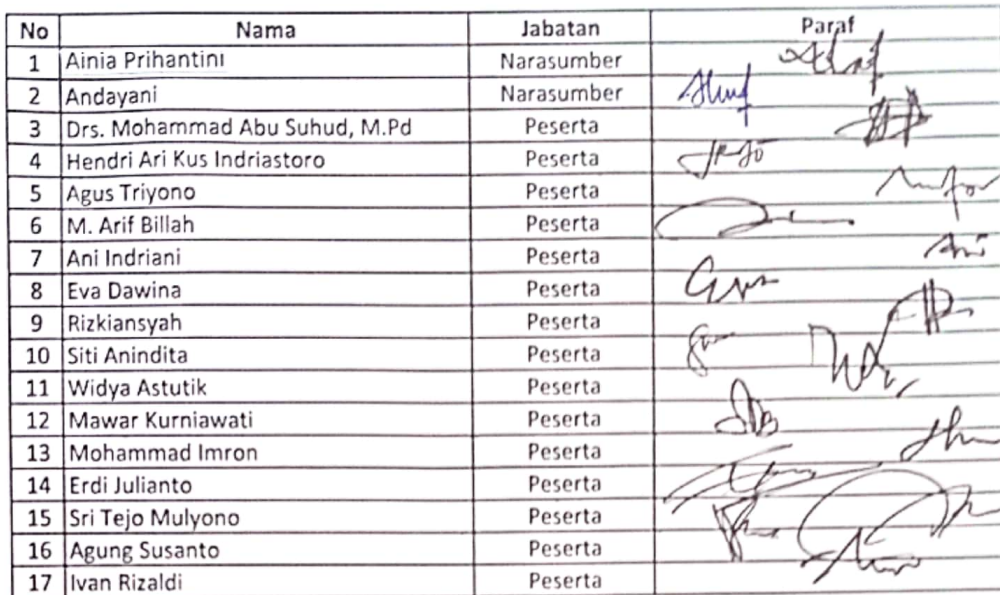 No Nama Jabatan Paraf
1 Ainia Prihantini Narasumber
2 Andayani Narasumber
3 Drs. Mohammad Abu Suhud, M.Pd Peserta
4 Hendri Ari Kus Indriastoro Peserta
5 Agus Triyono Peserta
6 M. Arif Billah Peserta
7 Ani Indriani Peserta
8 Eva Dawina Peserta
9 Rizkiansyah Peserta
10 Siti Anindita Peserta
11 Widya Astutik Peserta
12 Mawar Kurniawati Peserta
13 Mohammad Imron Peserta
14 Erdi Julianto Peserta
15 Sri Tejo Mulyono Peserta
16 Agung Susanto Peserta
17 Ivan Rizaldi Peserta